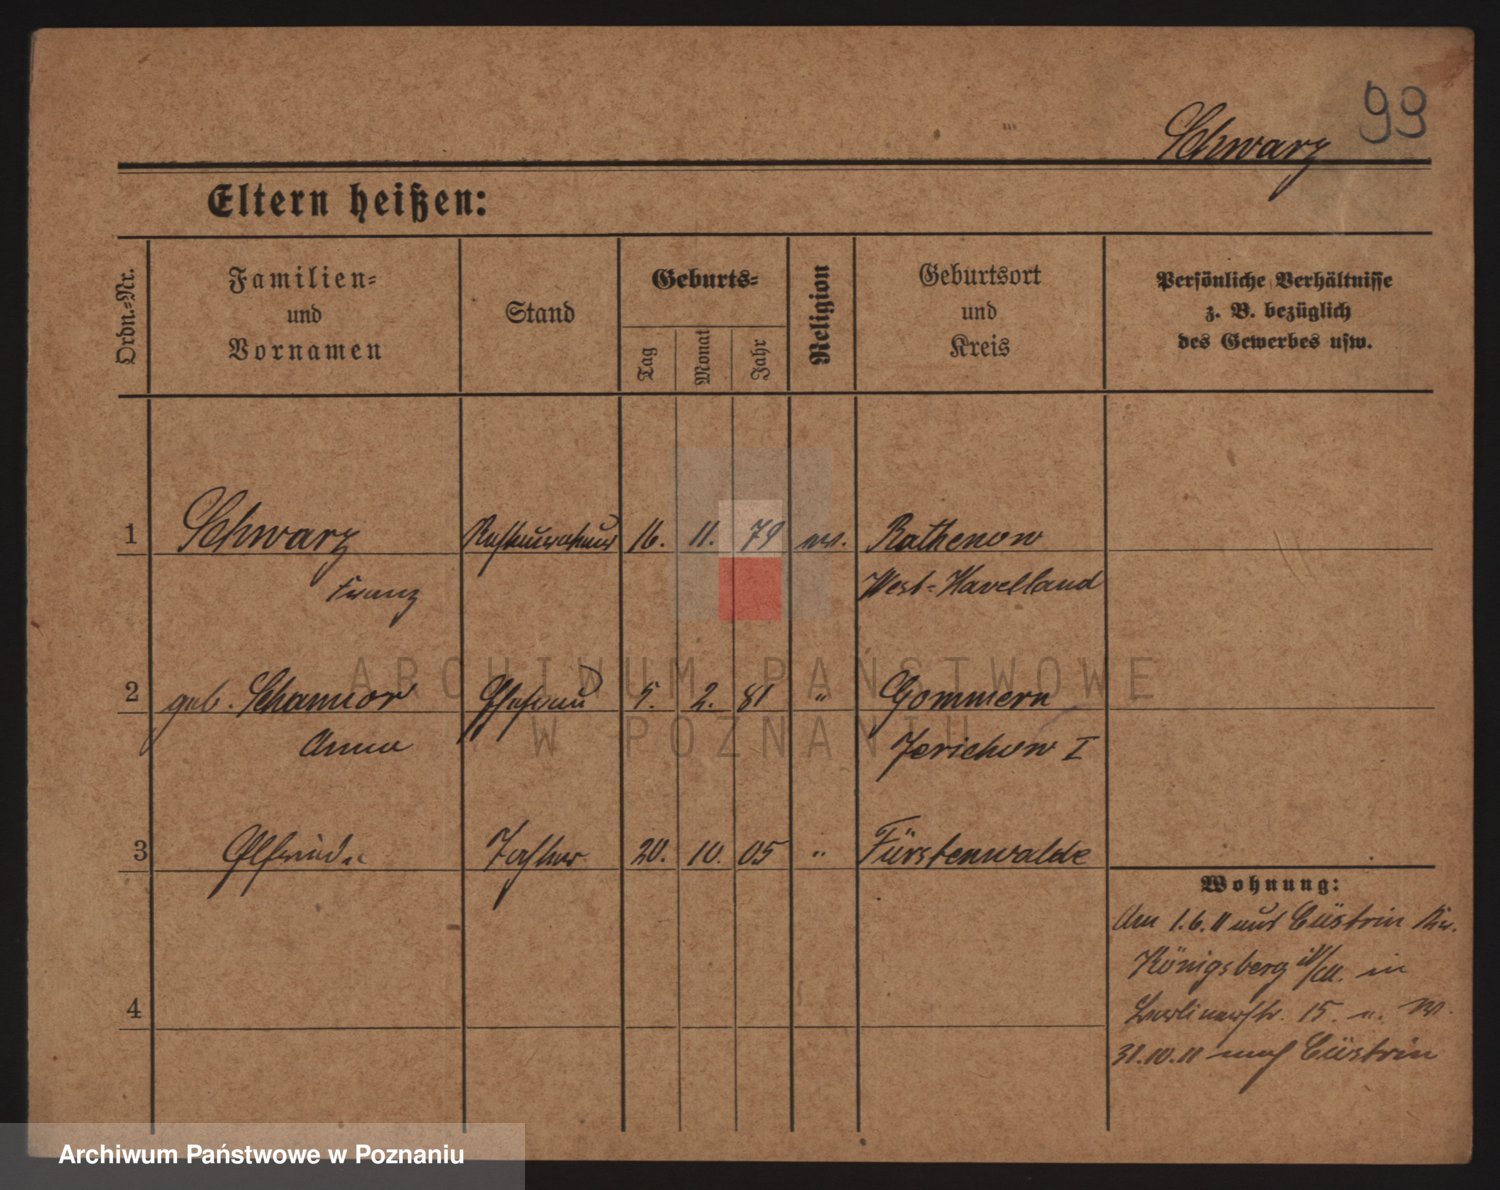 99
Schwarz
Eltern heißen:
Ordn.-Nr.
Familien-
und
Vornamen
Stand
Geburts-
Tag
Monat
Jahr
Religion
Geburtsort
und
Kreis
Persönliche Verhältnisse
z. B. bezüglich
des Gewerbes usw.
1 Schwarz Restaurateur 16. 11. 79 ev. Rathenow
Franz West-Havelland
2 geb. Ehefrau 5. 2. 81 " Gommern
Anna Jerichow I
3 Elfriede Tochter 20. 10. 05 " Fürstenwalde
Wohnung:
Am 1.6.11 aus Cüstrin Kr.
Königsberg in
Berlinerstr. 15.
4
31.10.11 nach Cüstrin
ARCHIWUM PAŃSTWOWE
W POZNANIU
Archiwum Państwowe w Poznaniu